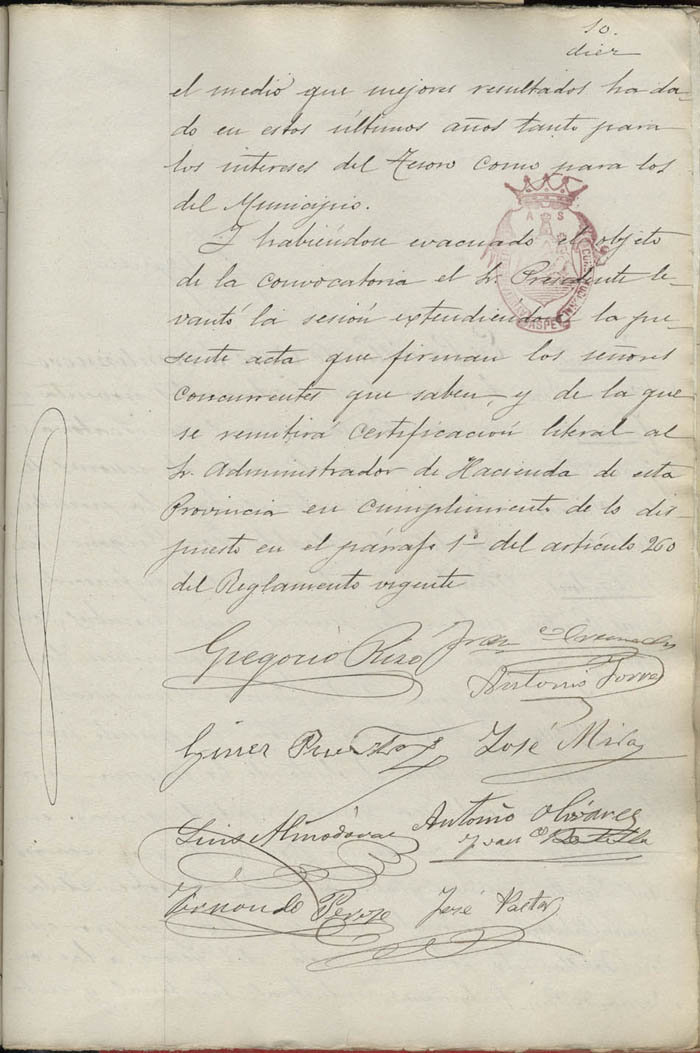 10.
diez
el medio que mejores resultados ha da-
do en estos últimos años tanto para
los intereses del Tesoro como para los
del Municipio.
Y habiéndose evacuado el objeto
de la convocatoria el Sr. Presidente le-
vantó la sesión extendiéndose la pre-
sente acta que firman los señores
concurrentes que saben, y de la que
se remitirá certificación literal al
Sr. Administrador de Hacienda de esta
Provincia en cumplimiento de lo dis-
puesto en el párrafo 1º del artículo 260
del Reglamento vigente
A S
ASPE
Gregorio Rizo
Antonio Torres
Giner
José Mira
Luis Almodóvar
Antonio Olivares
Fernando Perez
José Pastor